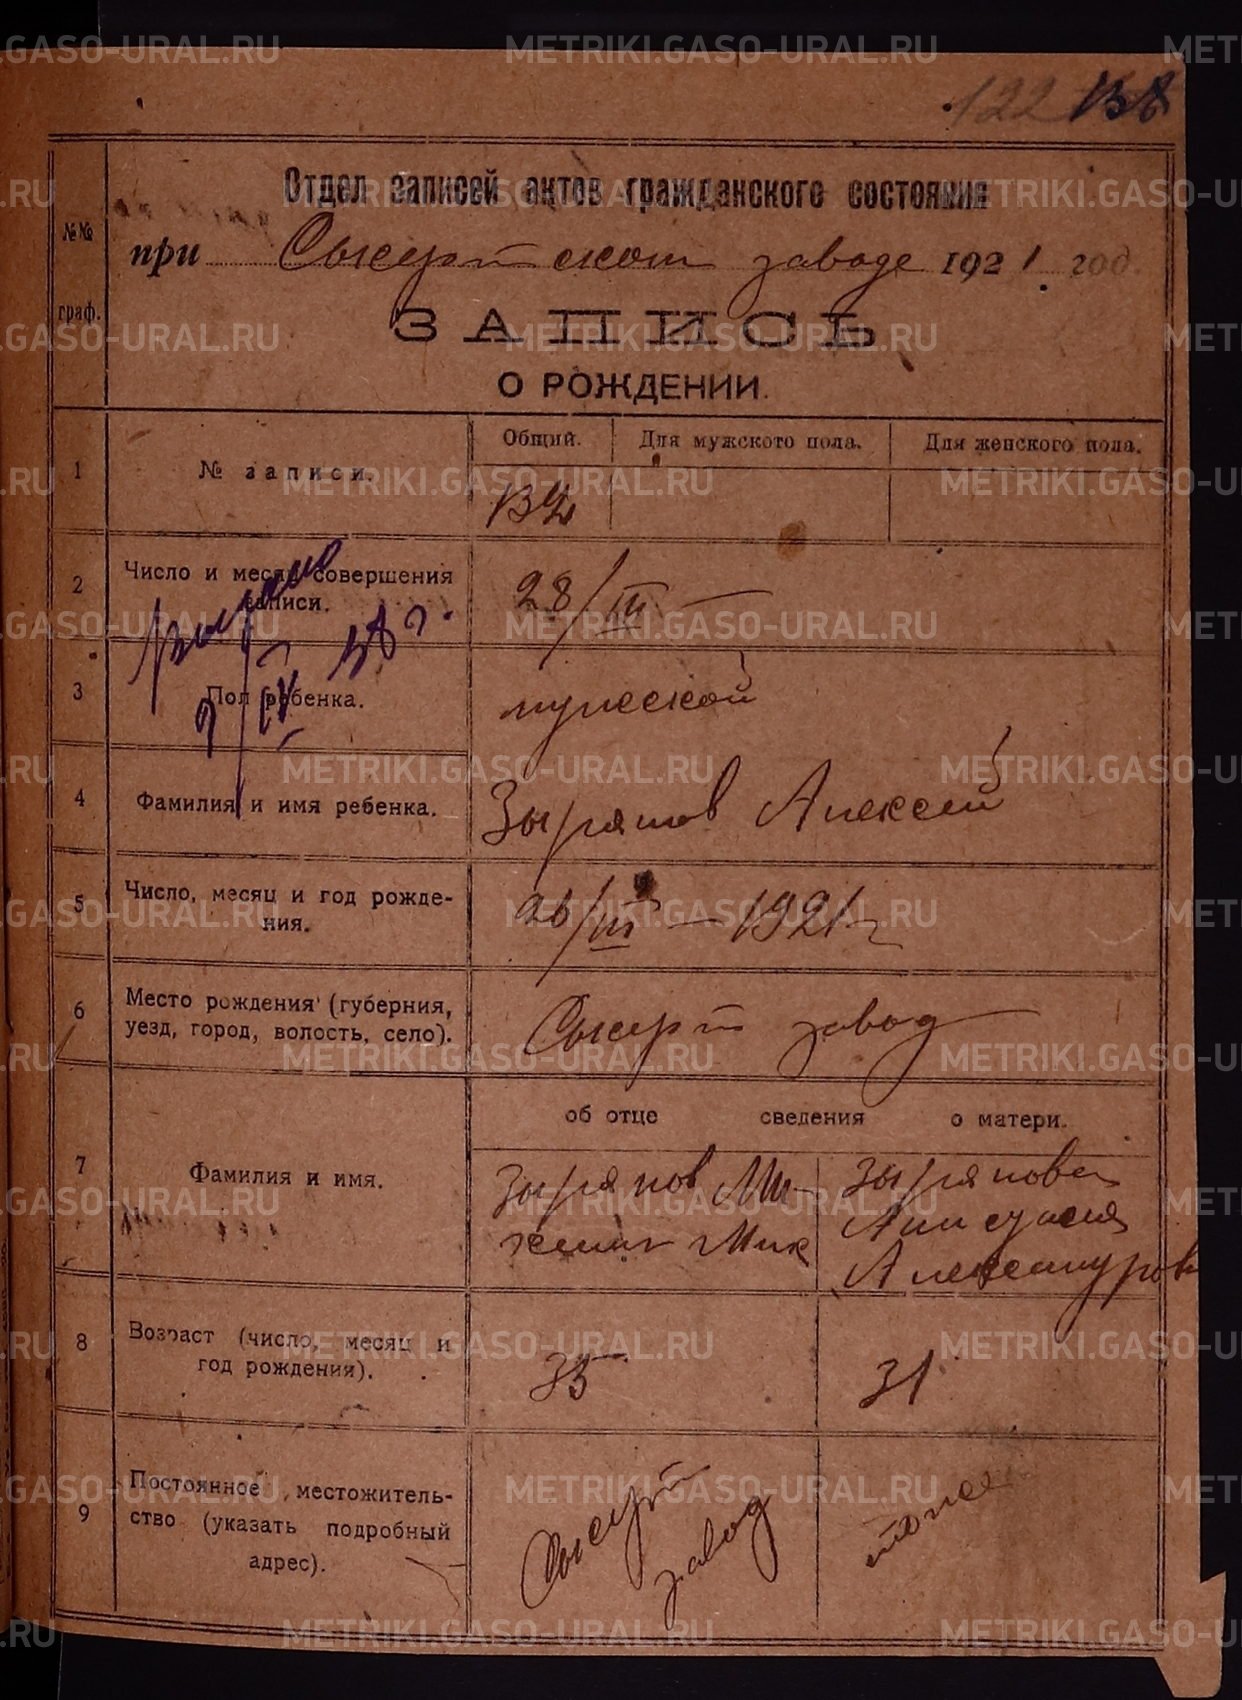 122 158
Отдел записей актов гражданского состояния
№№
граф.
при Сысертском заводе 1921 год.
ЗАПИСЬ
О РОЖДЕНИИ.
1 № записи.
Общий. Для мужского пола. Для женского пола.
132
2 Число и месяц совершения
записи.
28/III —
3 Пол ребенка.
мужской
4 Фамилия и имя ребенка.
Зырянов Алексей
5 Число, месяц и год рожде-
ния.
26/III — 1921 г
6 Место рождения (губерния,
уезд, город, волость, село).
Сысерт завод
об отце сведения о матери.
7 Фамилия и имя.
Зырянов Ми-
Мих
Зырянова
8 Возраст (число, месяц и
год рождения).
35
31
9 Постоянное местожитель-
ство (указать подробный
адрес).
Сысерт
завод
METRIKI.GASO-URAL.RU